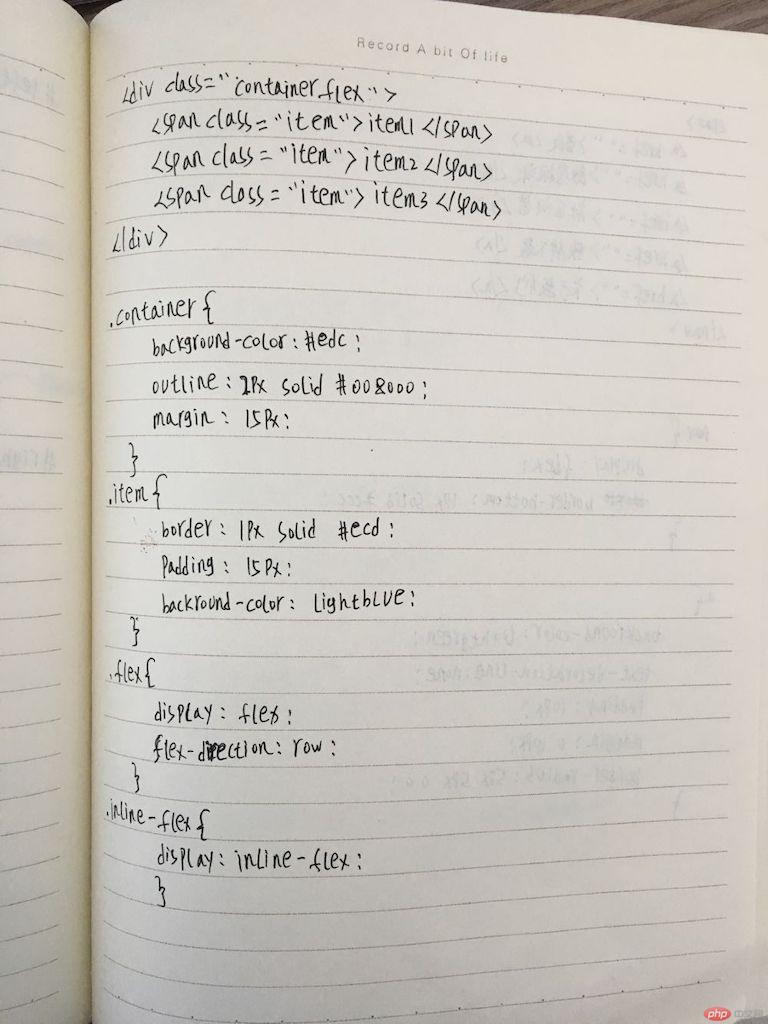 Record A bit Of life
<div class="container flex">
<span class="item">item1</span>
<span class="item">item2</span>
<span class="item">item3</span>
</div>
.container{
background-color: #edc;
outline: 2px solid #008000;
margin: 15px;
}
.item{
border: 1px solid #ecd;
Padding: 15px;
backround-color: lightblue;
}
.flex{
display: flex;
flex-direction: row;
}
.inline-flex{
display: inline-flex;
}
php